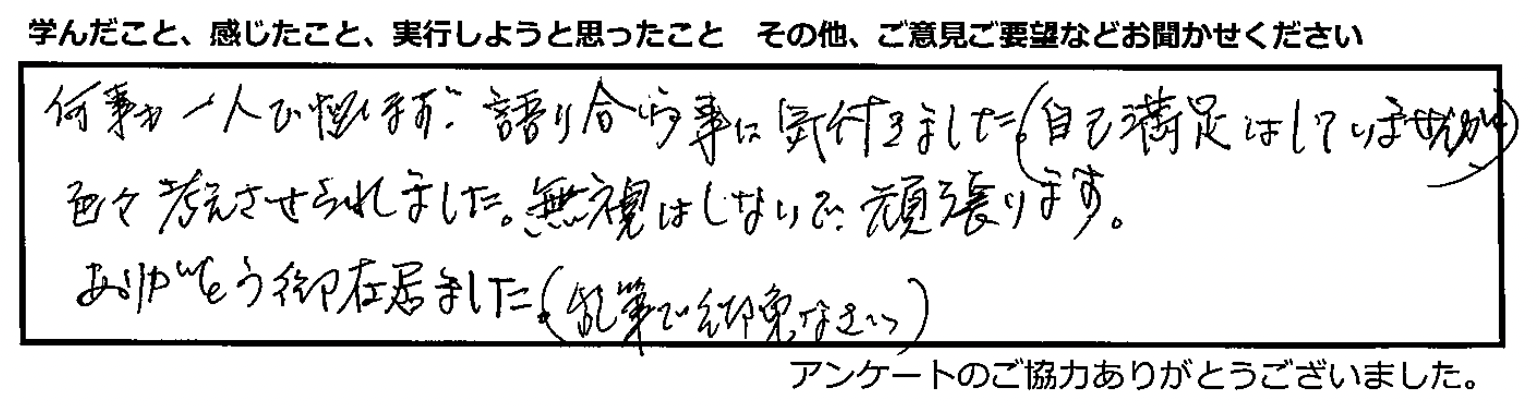 学んだこと、感じたこと、実行しようと思ったこと　その他、ご意見ご要望などお聞かせください
何事も一人で悩みます。語り合う事に気付きました。(自己満足はしていませんが)
色々考えさせられました。無視はしないで頑張ります。
ありがとう御在居ました。(乱筆で御免なさい)
アンケートのご協力ありがとうございました。